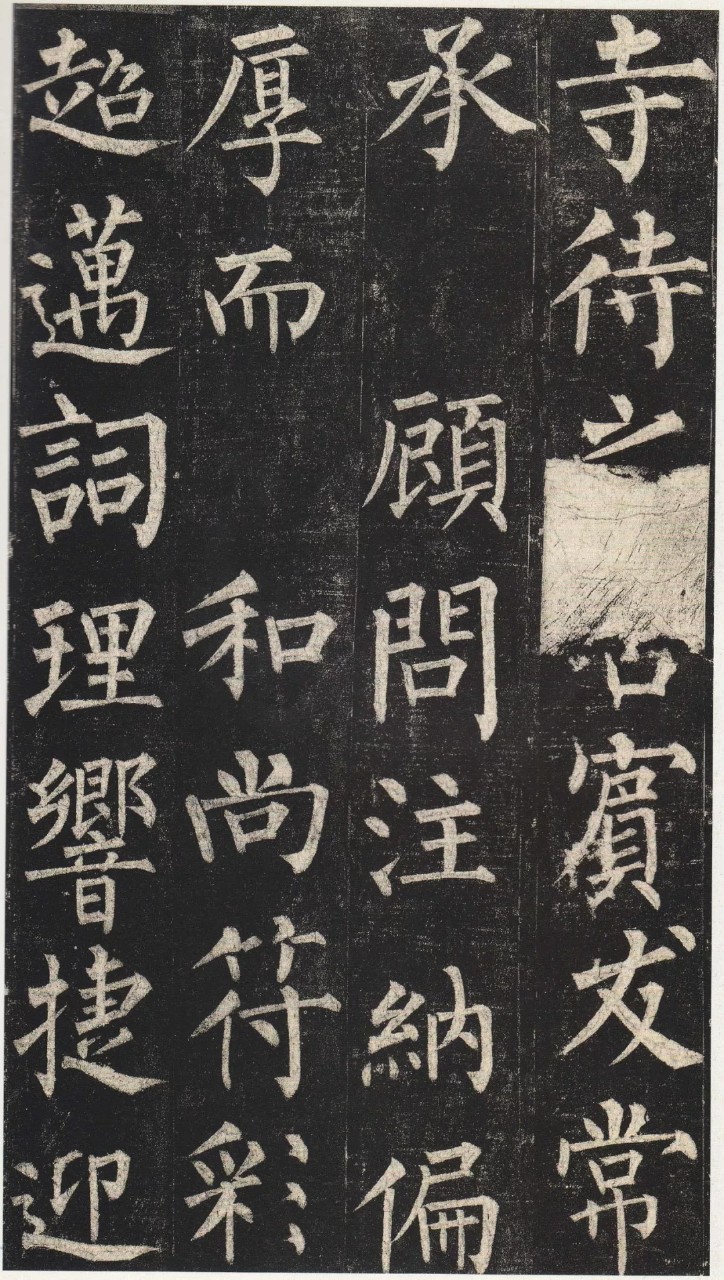 寺待之賔友常
承 顧問注納偏
厚而 和尚符彩
超邁詞理響捷迎